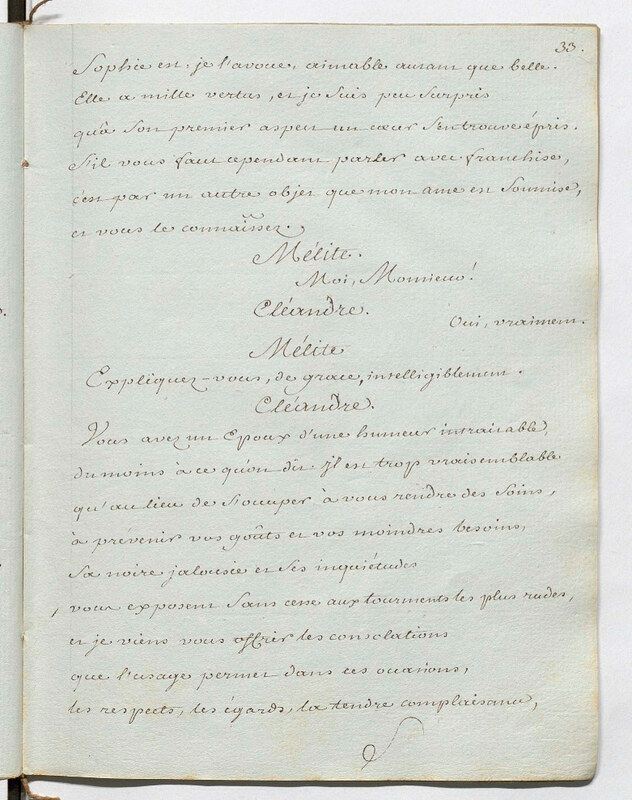 33.
Sophie est, je l'avoue, aimable autant que belle.
Elle a mille vertus, et je suis peu surpris
qu'à son premier aspect un cœur s'en trouve épris.
S'il vous faut cependant parler avec franchise,
c'est par un autre objet que mon ame est soumise,
et vous le connaissez.
Mélite.
Moi, Monsieur!
Cléandre.
Oui, vraiment.
Mélite
Expliquez-vous, de grace, intelligiblement.
Cléandre.
Vous avez un Epoux d'une humeur intraitable,
du moins à ce qu'on dit. Il est trop vraisemblable
qu'au lieu de s'occuper à vous rendre des soins,
à prévenir vos goûts et vos moindres besoins,
sa noire jalousie et ses inquiétudes
vous exposent sans cesse aux tourments les plus rudes,
et je viens vous offrir les consolations
que l'usage permet dans ces occasions,
les respects, les égards, la tendre complaisance,